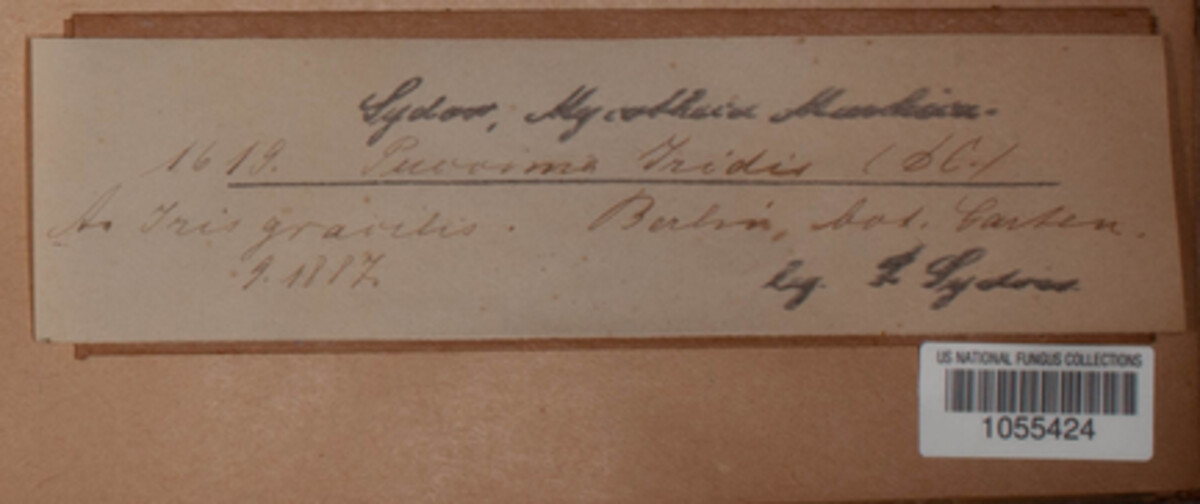 Sydow, Mycotheca Marchica.
1619. Puccinia Iridis (DC.)
A. Iris gracilis. Berlin, bot. Garten.
9. 1887.
leg. P. Sydow
US NATIONAL FUNGUS COLLECTIONS
1055424